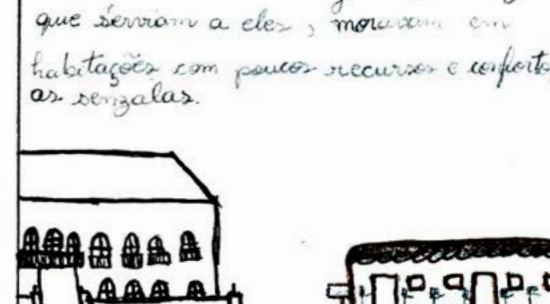 que serviam a eles, moravam em
habitações com poucos recursos e conforto
as senzalas.